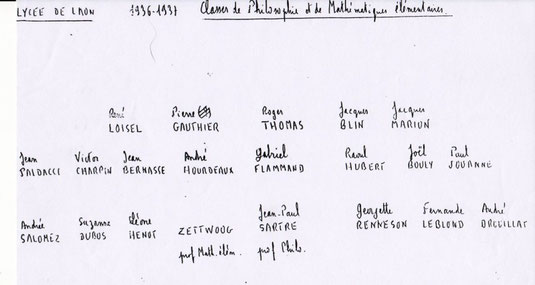 LYCEE DE LAON 1936-1937 Classes de Philosophie et de Mathématiques élémentaires.
René Pierre Roger Jacques Jacques
LOISEL GAUTHIER THOMAS BLIN MARION
Jean Victor Jean André Gabriel Raoul Joël Paul
BALDACCI CHARPIN BERNASSE HOURDEAUX FLAMMAND HUBERT BOULY JOUANNE
Andrée Suzanne Jean-Paul Georgette Fernande André
SALOMEZ DUBOS HENOT ZETTWOOG SARTRE RENNESON LEBLOND
prof Math. élém. prof Philo.